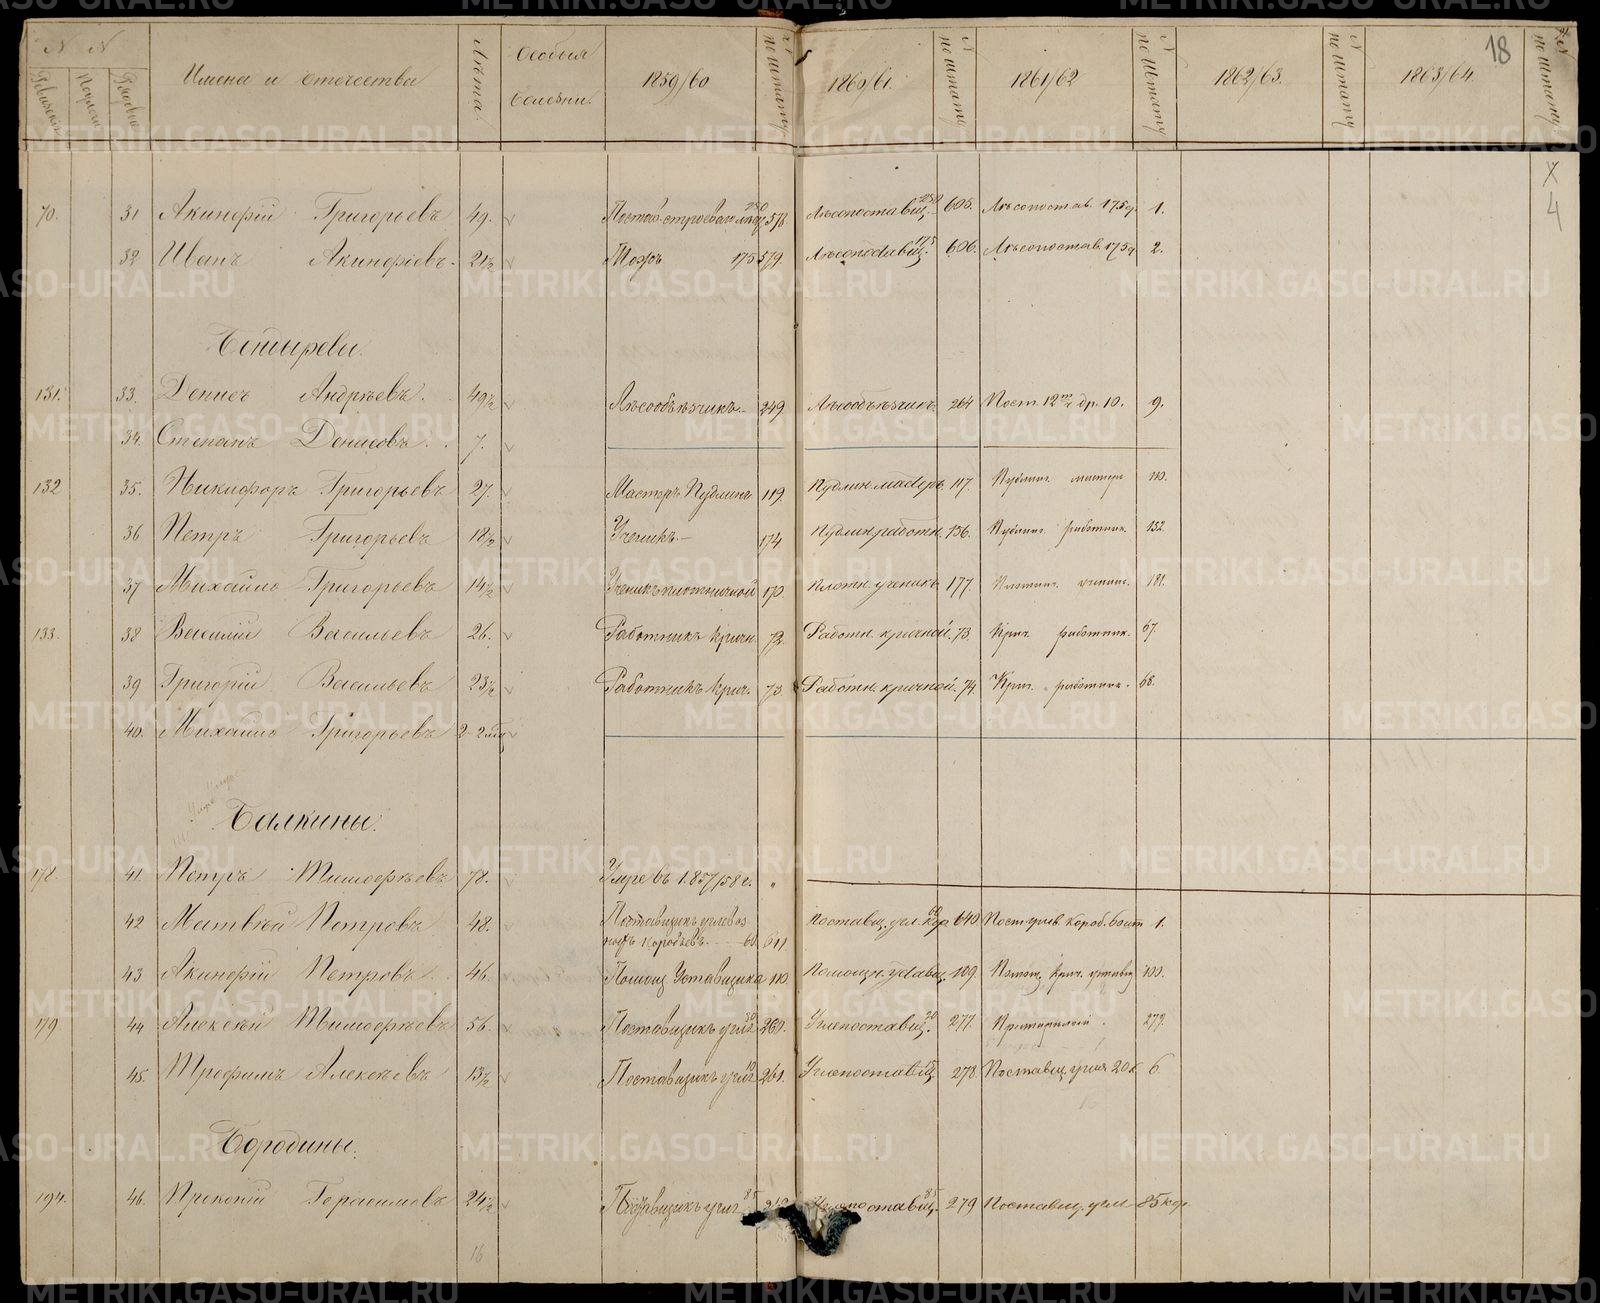 N N Имена и отечества Лѣта Особыя болѣзни. 1859/60 N по штату 1860/61. N по штату 1861/62 N по штату 1862/63. N по штату 1863/64. N по штату 18
X 4
70. 31 Акинфій Григорьевъ 49. 250 578 Лѣсопоставщ. 250 605. Лѣсопостав. 175 1.
32 Иванъ Акинфіевъ. 21½ Тожъ 175 579. Лѣсопоставщ. 175 606. Лѣсопостав. 175 2.
131. 33. Денисъ Андрѣевъ. 49½ Лѣсообъѣзчикъ 249 Лѣсообъѣзчикъ 264 Пост. 12 др. 10. 9.
34. Степанъ Денисовъ. 7.
132 35. Никифоръ Григорьевъ 27. Мастеръ Пудлинг. 119. Пудлин. мастеръ 117. Пудлинг. мастеръ 110.
36 Петръ Григорьевъ 18½ Ученикъ 174 Пудлин. работн. 156. Пудлинг. работник. 152.
37 Михайло Григорьевъ 14½ Ученикъ плотничной 170. Плотн. ученикъ 177. Плотнич. ученик. 181.
133. 38 Василій Васильевъ 26. Работникъ кричн. 72. Работн. кричной. 73. Крич. работник. 67.
39 Григорій Васильевъ 23½ Работникъ крич. 73. Работн. кричной. 74. Крич. работник. 68.
40. Михайло Григорьевъ 2
Балкины.
178. 41. Петръ Тимофѣевъ 78. Умре въ 1857/58 г. "
42 Матвѣй Петровъ 48. Поставщикъ углевоз
ныхъ коробьевъ 60. 611 Поставщ. угл. кор 60 610. Пост. углев. короб. 1.
43 Акинфій Петровъ. 46. Помощ. Уставщика 110. Помощн. уставщ. 109. Помощ. крич. уставщ 100.
179 44 Алексѣй Тимофѣевъ 56. Поставщикъ угля 30 260. Углепоставщ. 30 277. 279.
45. Трофимъ Алексѣевъ 13½ Поставщикъ угля 10 261. Углепоставщ 278. Поставщ. угля 20 к 6.
Бородины.
194. 46. Прокопій Герасимовъ 24½ Поставщикъ угля 85 Углепоставщ. 85 279 Поставщ. угля 85 кор.
16
METRIKI.GASO-URAL.RU